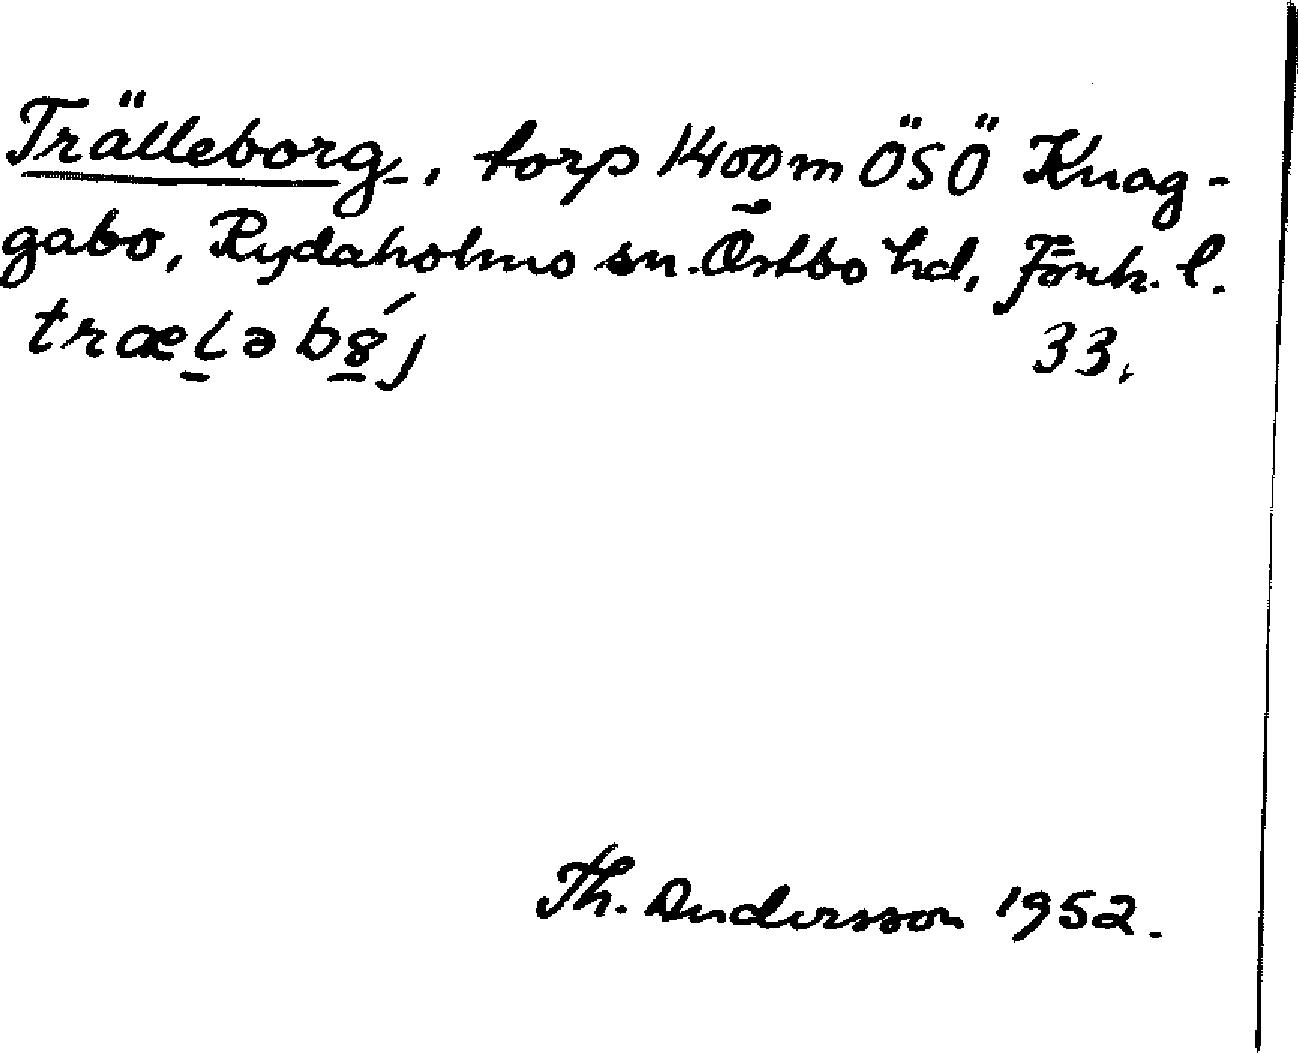 Trälleborg, torp 1400m ÖSÖ Knag-
gabo, Rydaholms sn. Östbo hd, Jönk. l.
træl̲əb8̲́j 33.
Th. Andersson 1952.